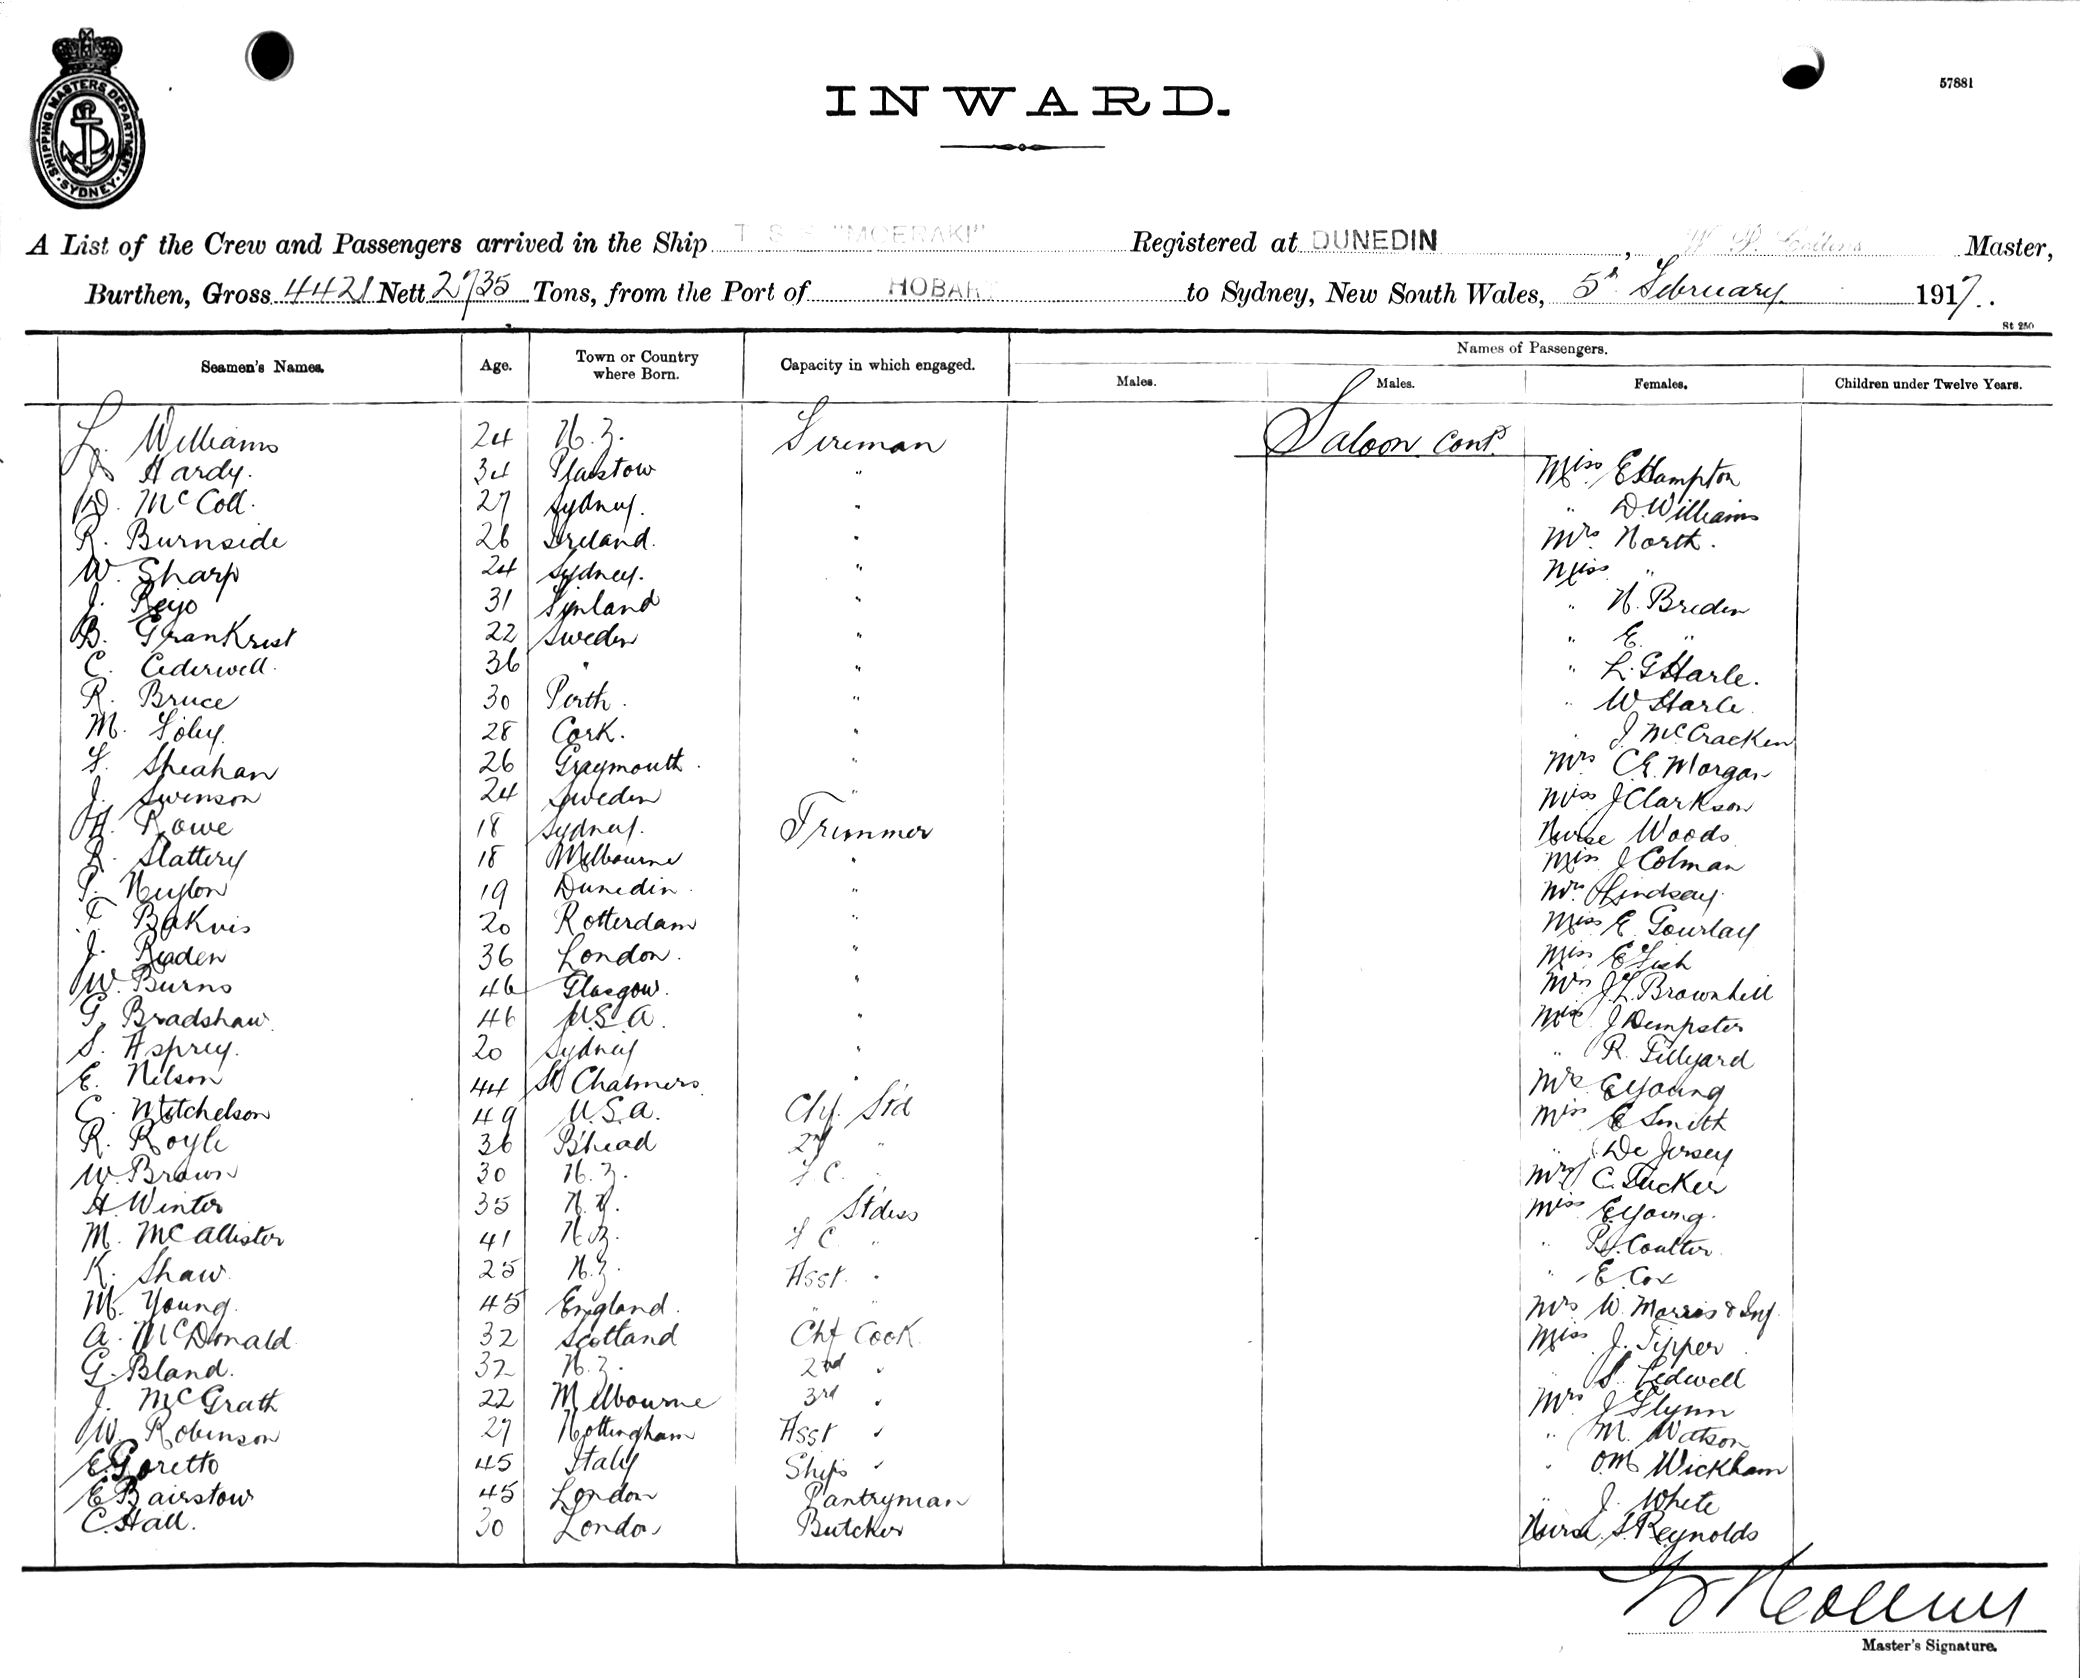 SHIPPING MASTERS DEPARTMENT · SYDNEY ·
57881
INWARD.
A List of the Crew and Passengers arrived in the Ship T. S. S. "MOERAKI" Registered at DUNEDIN, Collins Master,
Burthen, Gross 4421 Nett 2735 Tons, from the Port of HOBART to Sydney, New South Wales, 5th February 1917.
St 250
Seamen's Names. Age. Town or Country where Born. Capacity in which engaged. Names of Passengers.
Males. Males. Females. Children under Twelve Years.
L. Williams 24 N.Z. Fireman Saloon Cont.
J. Hardy. 34 Plaistow " Miss E Hampton
D. McColl. 27 Sydney. " " D. Williams
R. Burnside 26 Ireland. " Mrs North.
W. Sharp 24 Sydney. " Miss "
J. 31 Finland " " N. Breden
B. Grankrist 22 Sweden " " E. "
C. Cederwell. 36 " " " L. G Harle.
R. Bruce 30 Perth. " " W Harle.
M. Foley. 28 Cork. " " J McCracken
F. Sheahan 26 Graymouth. " Mrs C.E. Morgan
J. Swenson 24 Sweden " Miss J Clarkson
H. Rowe 18 Sydney. Trimmer Nurse Woods.
R. Slattery 18 Melbourne " Miss J Colman
P. Neylon 19 Dunedin. " Mrs Lindsay.
T. Bakvis 20 Rotterdam " Miss E. Gourlay
J. Raden 36 London. " Miss E Fish
W. Burns 46 Glasgow. " Mrs J. L. Brownhill
G. Bradshaw. 46 U.S.A. " J Dempster
S. Asprey. 20 Sydney " " R. Tillyard
E. Nelson 44 Pt Chalmers. " Mrs E Young
C. Mitchelson 49 U.S.A. Chf. Std Miss E Smith
R. Royle 36 B'head 2nd " " De Jersey
W. Brown 30 N.Z. F.C. " Mrs C. Tucker
H. Winter 35 N.Z. Stdess Miss E. Young.
M. McAllister 41 N.Z. F C " " Coulter.
K. Shaw. 25 N.Z. Asst. " " E. Cox
M. Young. 45 England. " " Mrs W. Morris & Inf.
A. McDonald. 32 Scotland Chf Cook. Miss J. Tipper
G. Bland. 32 N.Z. 2nd " " S. Ledwell
J. McGrath 22 Melbourne 3rd " Mrs J Flynn
W. Robinson 27 Nottingham Asst " " M. Watson
E. Goretto 45 Italy Ships " " O.M Wickham
E Bairstow 45 London Pantryman " J. White
C. Hall. 30 London Butcher Nurse S. Reynolds
Collins
Master's Signature.